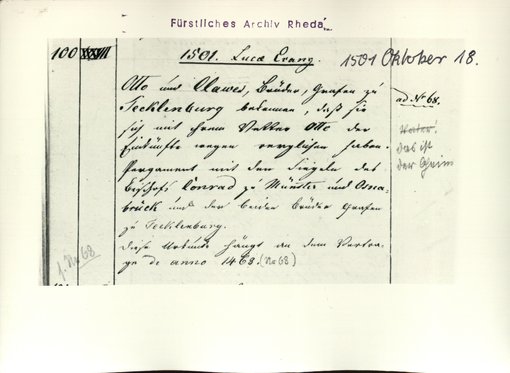 Fürstliches Archiv Rheda
100 XXXVII 1501. Lucæ Evang. 1501 Oktober 18.
Otto und Clawes, Brüder, Grafen zu
Tecklenburg bekennen, daß sie
sich mit ihrem Vetter Otto der
Einkünfte wegen verglichen haben.
Pergament mit den Siegeln des
Bischofs Conrad zu Münster und Osna-
brück und der beiden Brüder Grafen
zu Tecklenburg.
Diese Urkunde hängt an dem Vertra-
ge de anno 1468. (No 68)
ad. No 68.
Vater!
das ist
der Oheim
f. No 68